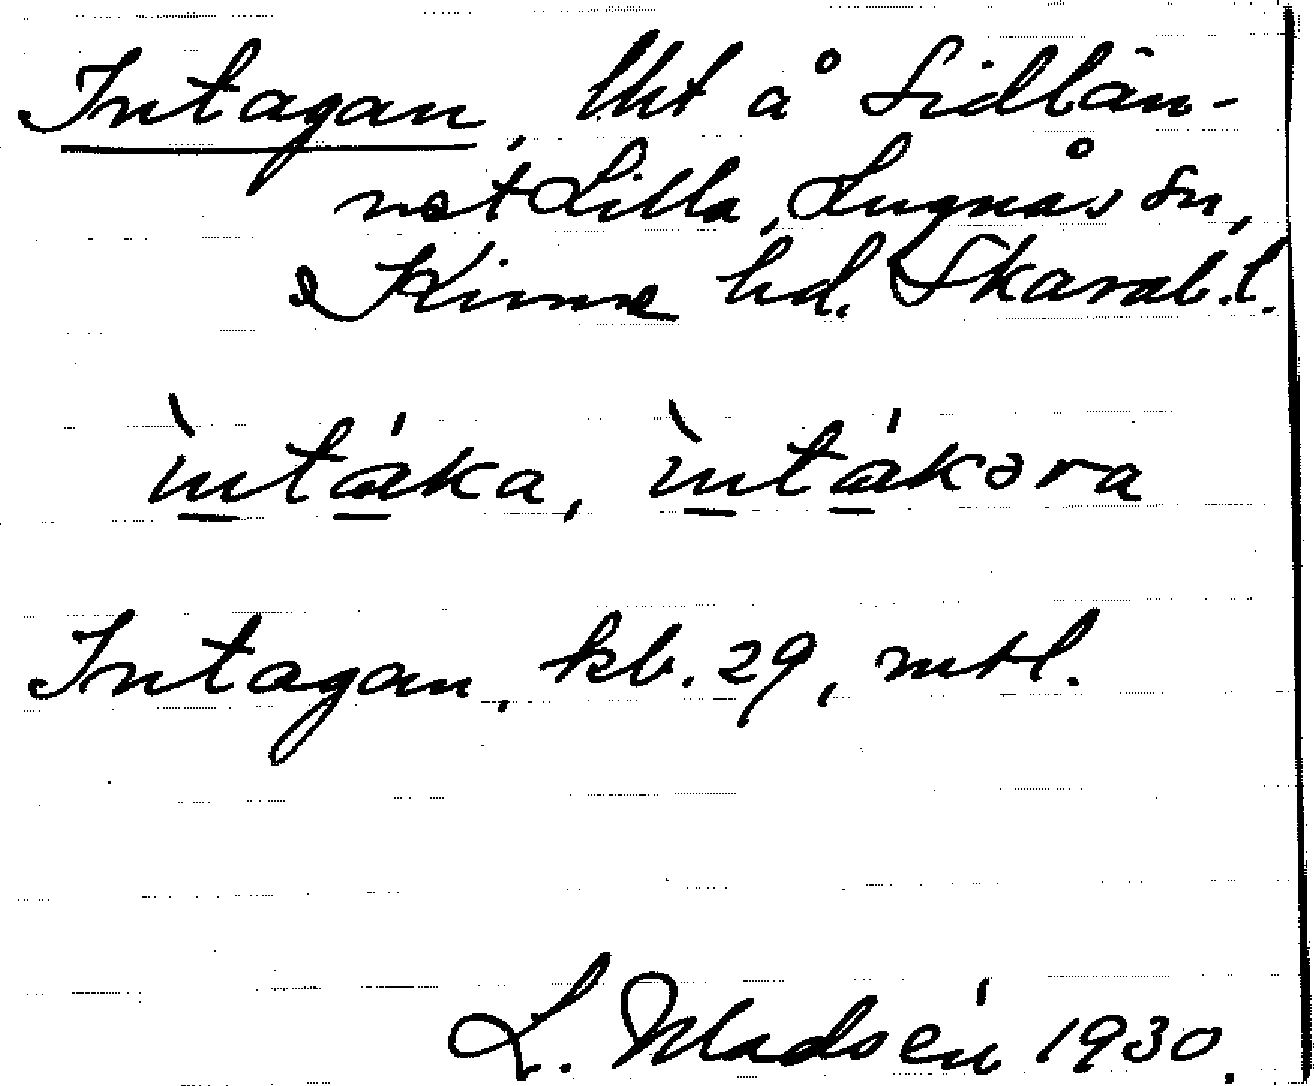 Intagan, lht å Sidlän-
net Lilla, Lugnås sn,
Kinne hd. Skarab. l.
ìntáka, ìntákəra
Intagan, kb. 29, mtl.
L. Madsén 1930.